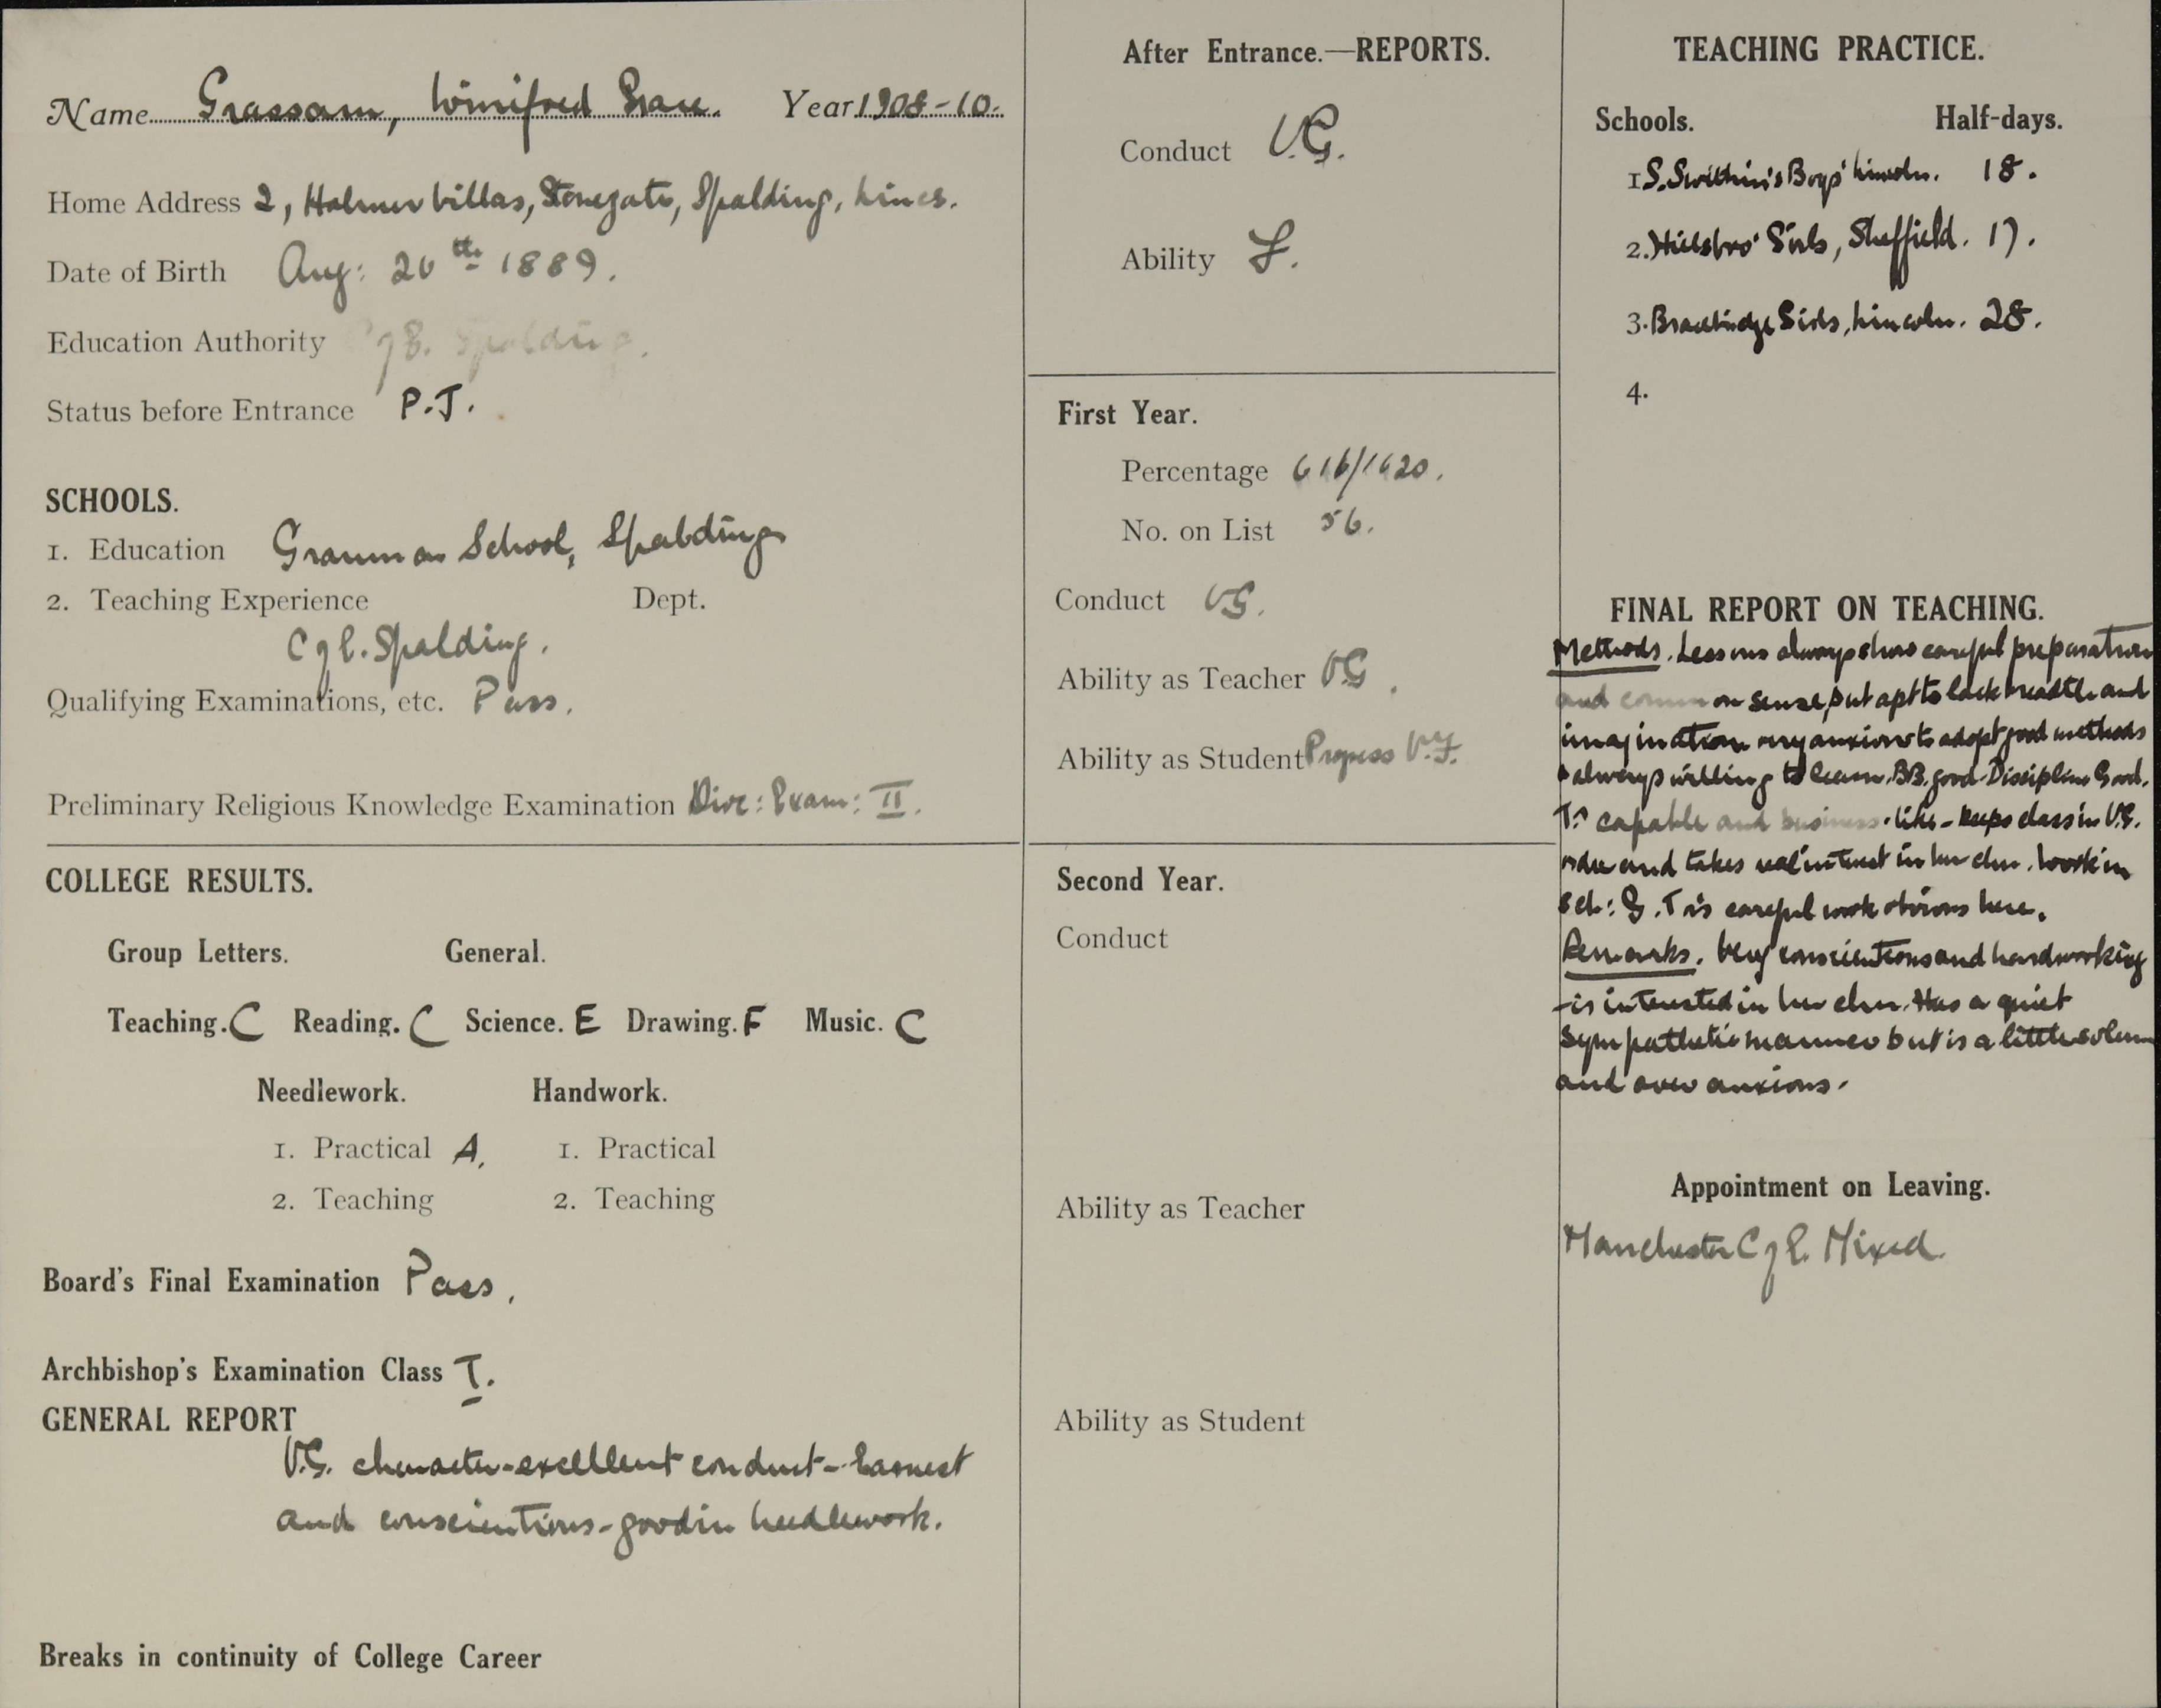 Name Grassam, Winifred Grace. Year 1908-10.
Home Address 2, Holmer Villas, Stonegate, Spalding, Lincs.
Date of Birth Aug: 20th 1889.
Education Authority C of E. Spalding.
Status before Entrance P.T.
SCHOOLS.
1. Education Grammar School, Spalding
2. Teaching Experience Dept.
C of E. Spalding.
Qualifying Examinations, etc. Pass.
Preliminary Religious Knowledge Examination Dioc: Exam: II.
COLLEGE RESULTS.
Group Letters. General.
Teaching. C Reading. C Science. E Drawing. F Music. C
Needlework. Handwork.
1. Practical A. 1. Practical
2. Teaching 2. Teaching
Board's Final Examination Pass.
Archbishop's Examination Class I.
GENERAL REPORT
V.G. character - excellent conduct - Earnest
and conscientious - good in needlework.
Breaks in continuity of College Career
After Entrance.—REPORTS.
Conduct V.G.
Ability F.
First Year.
Percentage 616/1620.
No. on List 56.
Conduct VG.
Ability as Teacher VG.
Ability as Student Progress V.F.
Second Year.
Conduct
Ability as Teacher
Ability as Student
TEACHING PRACTICE.
Schools. Half-days.
1 S. Swithin's Boys' Lincoln. 18.
2. Hillsbro' Girls, Sheffield. 17.
3. Bracebridge Girls, Lincoln. 28.
4.
FINAL REPORT ON TEACHING.
Methods. Lessons always show careful preparation
and common sense, but apt to lack and
imagination very anxious to adopt good methods
& always willing to learn. BB. good. Discipline Good.
T. capable and business-like - keeps class in V.G.
order and takes real interest in her chn. Work in
sch: G. T's careful work obvious here.
Remarks. Very conscientious and hardworking
- is interested in her chn. Has a quiet
sympathetic manner but is a little solemn
and over anxious.
Appointment on Leaving.
Manchester C of E. Mixed.